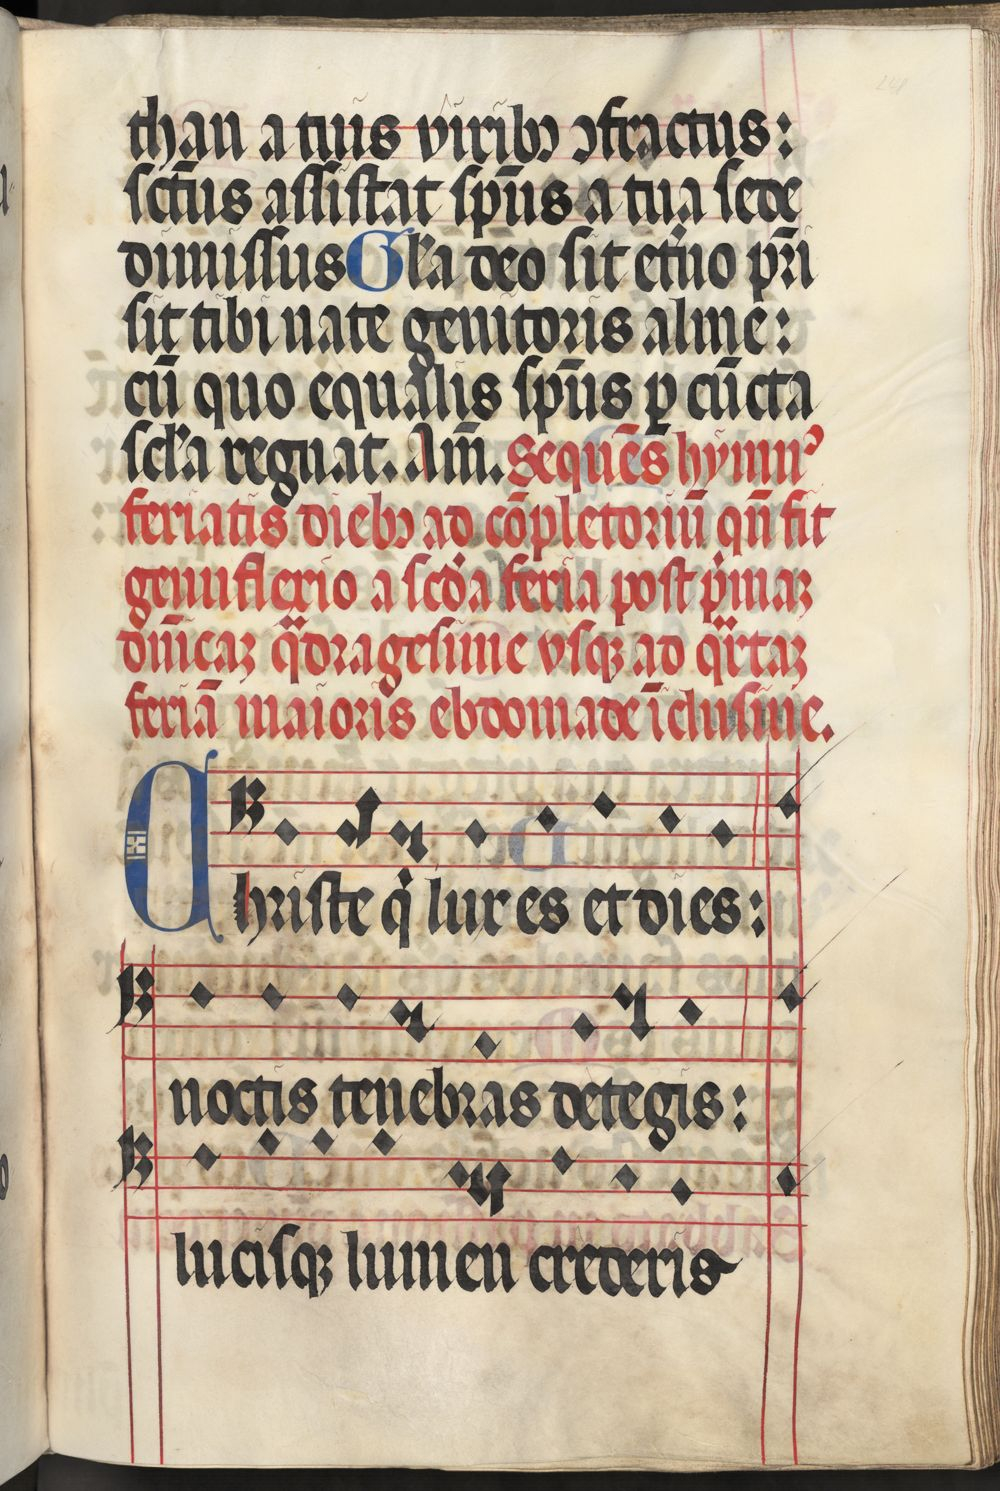 than a tuis virib₉ ↄfractus:
sct̄us assistat sp̄us a tua sede
dimissus Gl̄a deo sit et̓no pr̄i
sit tibi nate genitoris alme:
cū quo equalis sp̄us ꝑ cūcta
scl̄a regnat. Am̄. Sequēs hymn⁹
feriatis dieb₉ ad cōpletoriū qn̄ fit
genuflexio a scd̓a feria post p̓maꝫ
dn̄icaꝫ qᷓdragesime vsqꝫ ad qᷓrtaꝫ
feriā maioris ebdomade īclusiue.
Christe q̓ lux es et dies:
noctis tenebras detegis:
lucisqꝫ lumen crederis